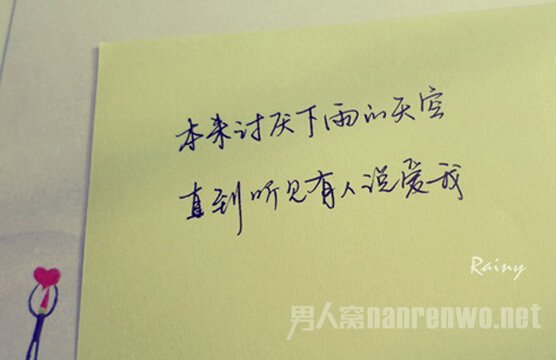 本来讨厌下雨的天空
直到听见有人说爱我
Rainy
男人窝nanrenwo.net